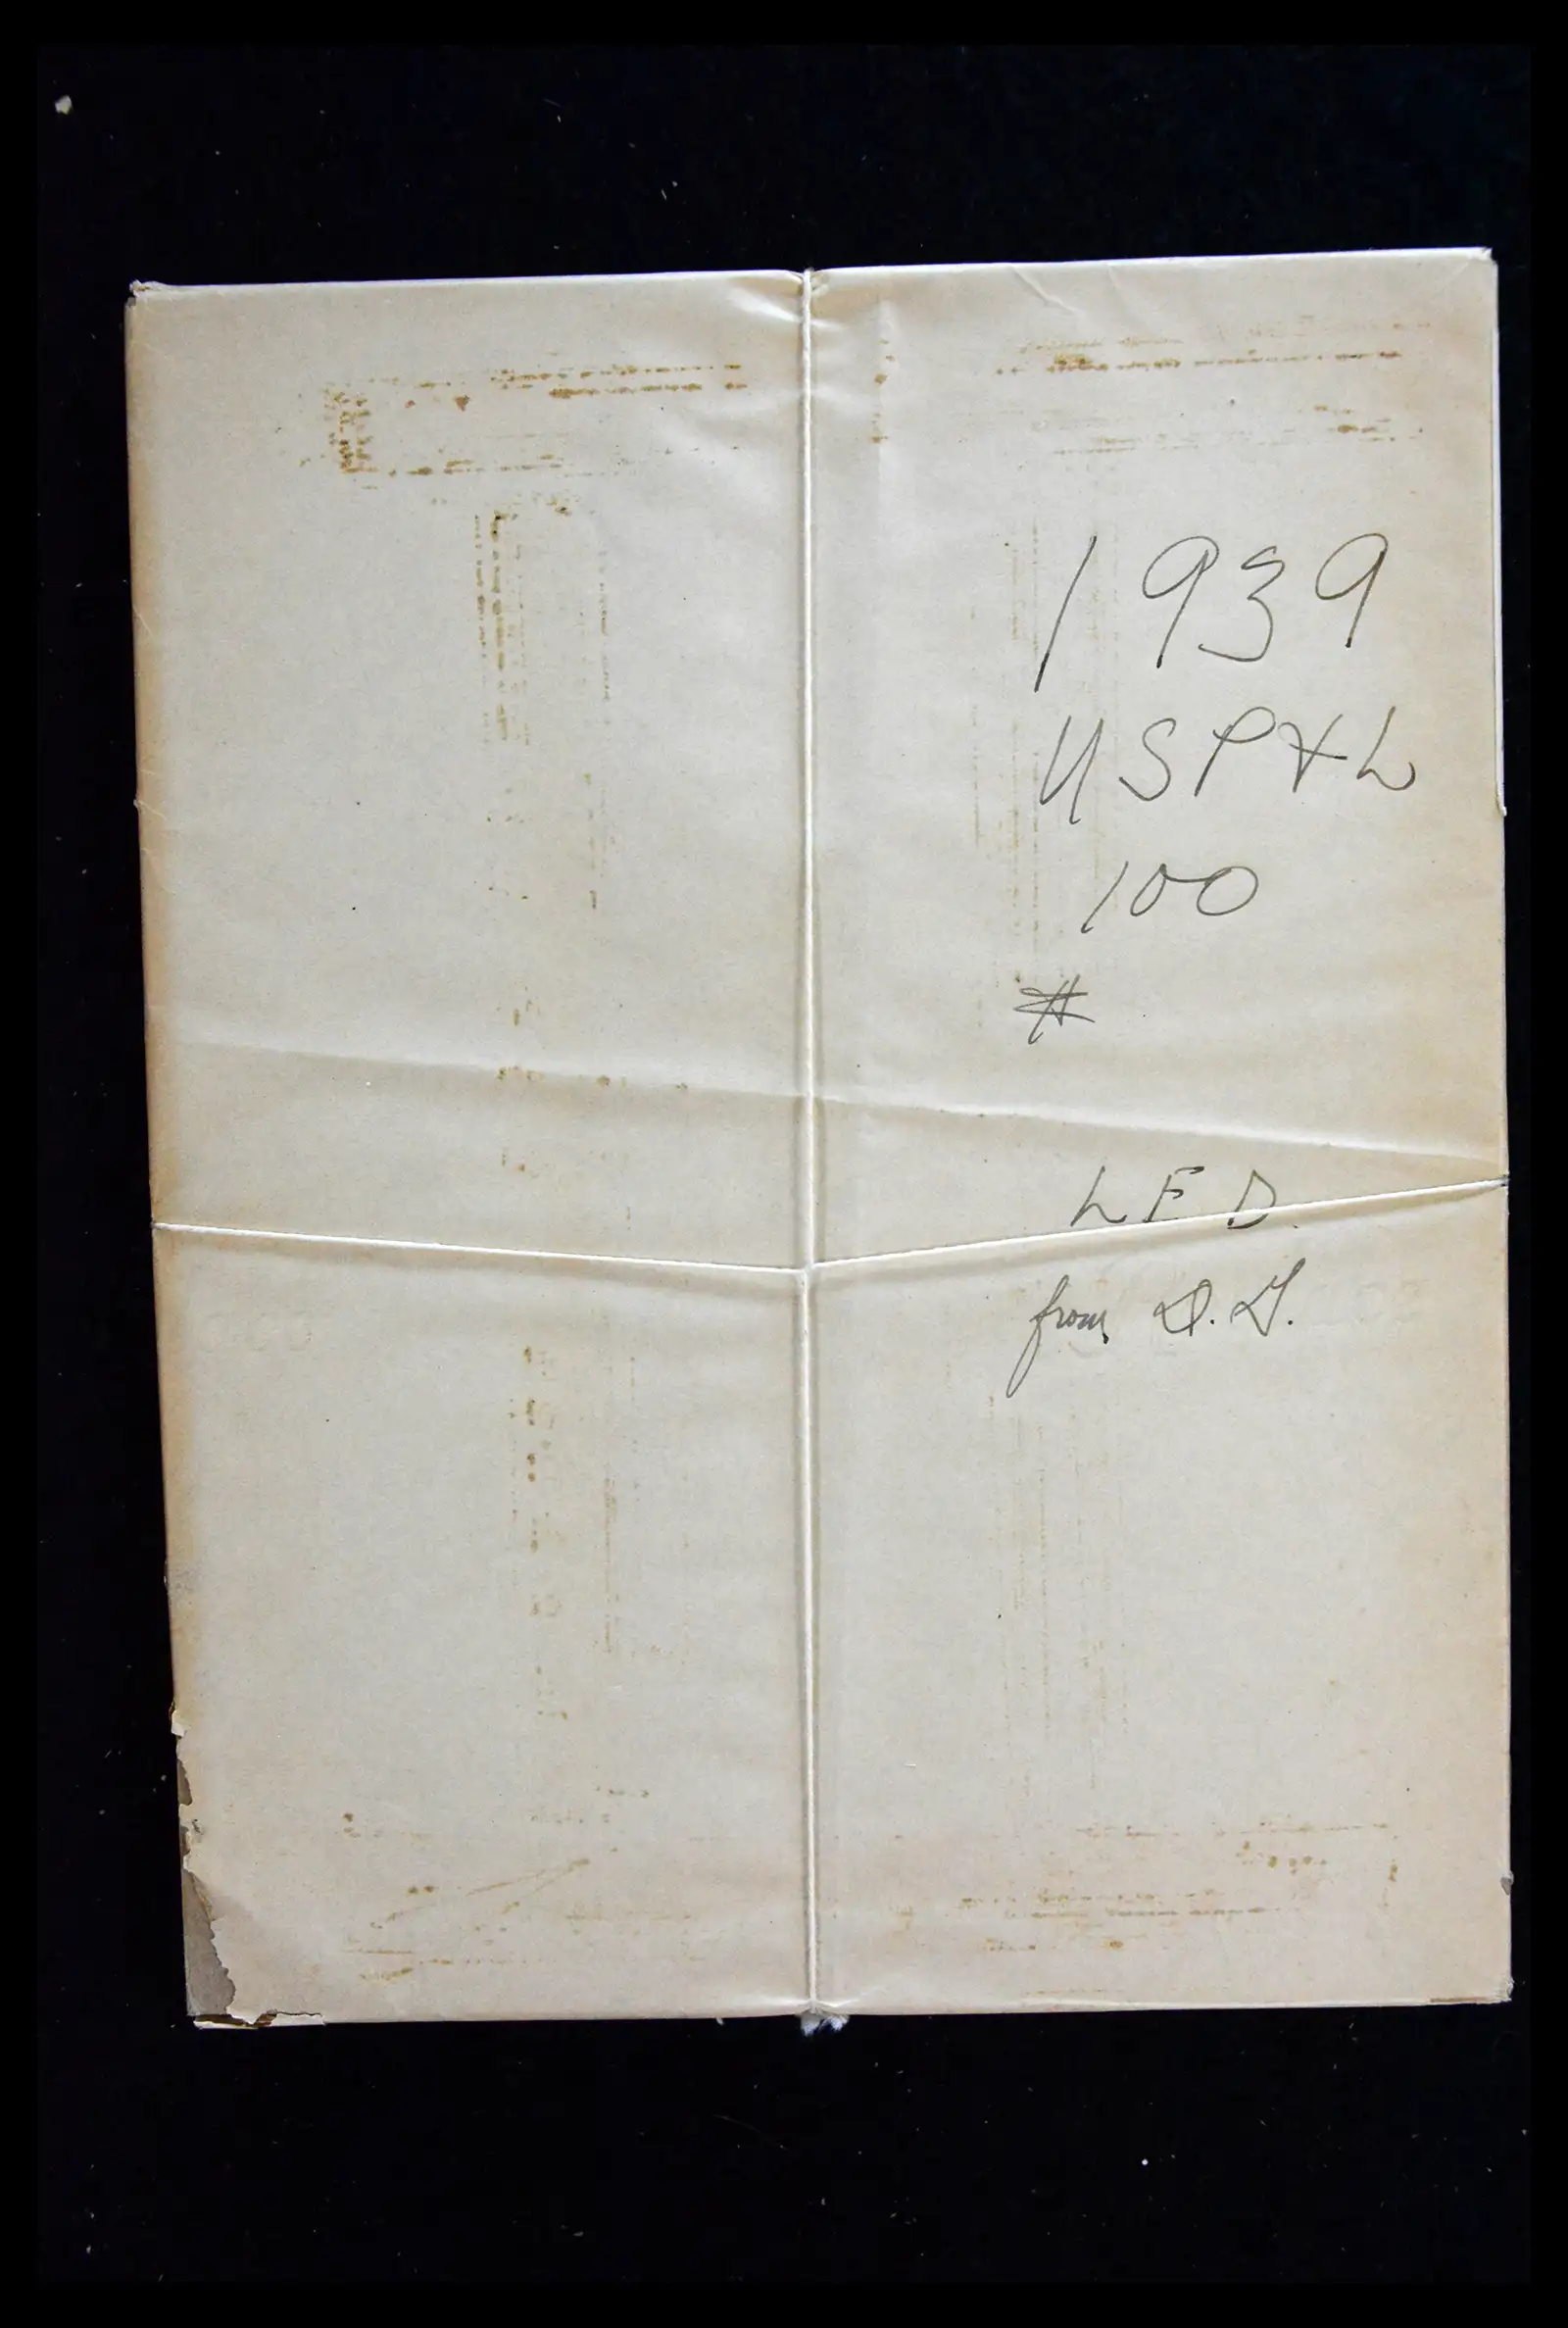 1939
USP&L
100
#
L F D.
from D.G.